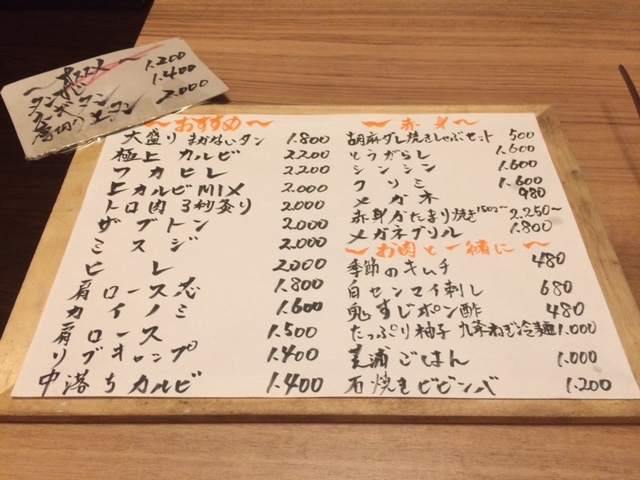 〜オススメ〜
タンサキ 1.200
タンカルビ 1.400
厚切り上タン 2.000
〜おすすめ〜
大盛り まかないタン 1.800
極上 カルビ 2.200
フカヒレ 2.200
上カルビMIX 2.000
トロ肉 3秒炙り 2.000
ザブトン 2.000
ミスジ 2.000
ヒレ 2.000
肩ロース芯 1.800
カイノミ 1.600
肩ロース 1.500
リブキロンプ 1.400
中落ちカルビ 1.400
〜赤身〜
胡麻ダレ焼きしゃぶセット 500
とうがらし 1.600
シンシン 1.600
クリミ 1.600
メガネ 980
赤身かたまり焼き150g〜 2.250〜
メガネグリル 1.800
〜お肉と一緒に〜
季節のキムチ 480
白センマイ刺し 680
鬼すじポン酢 480
たっぷり柚子 九条ねぎ冷麺 1.000
美浦ごはん 1.000
石焼きビビンバ 1.200